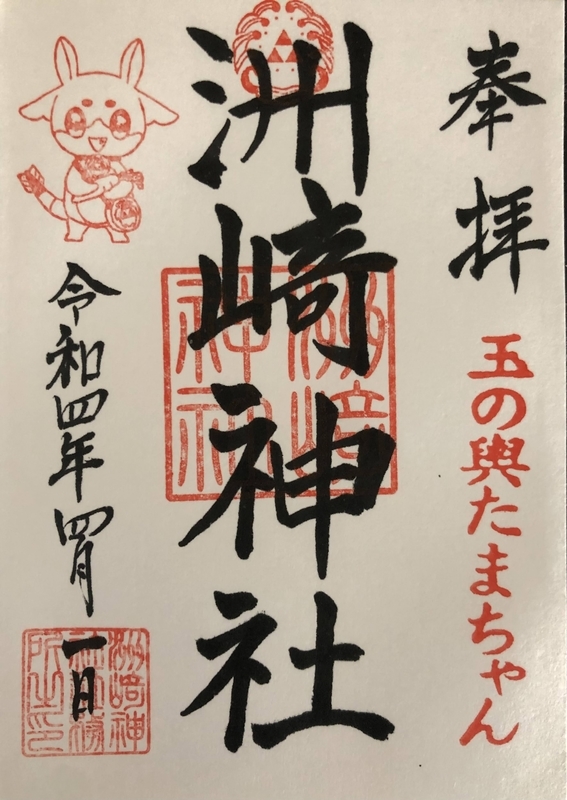 奉拝
玉の輿たまちゃん
洲崎神社
洲崎神社
令和四年四月一日
洲崎神
社社務
所之印